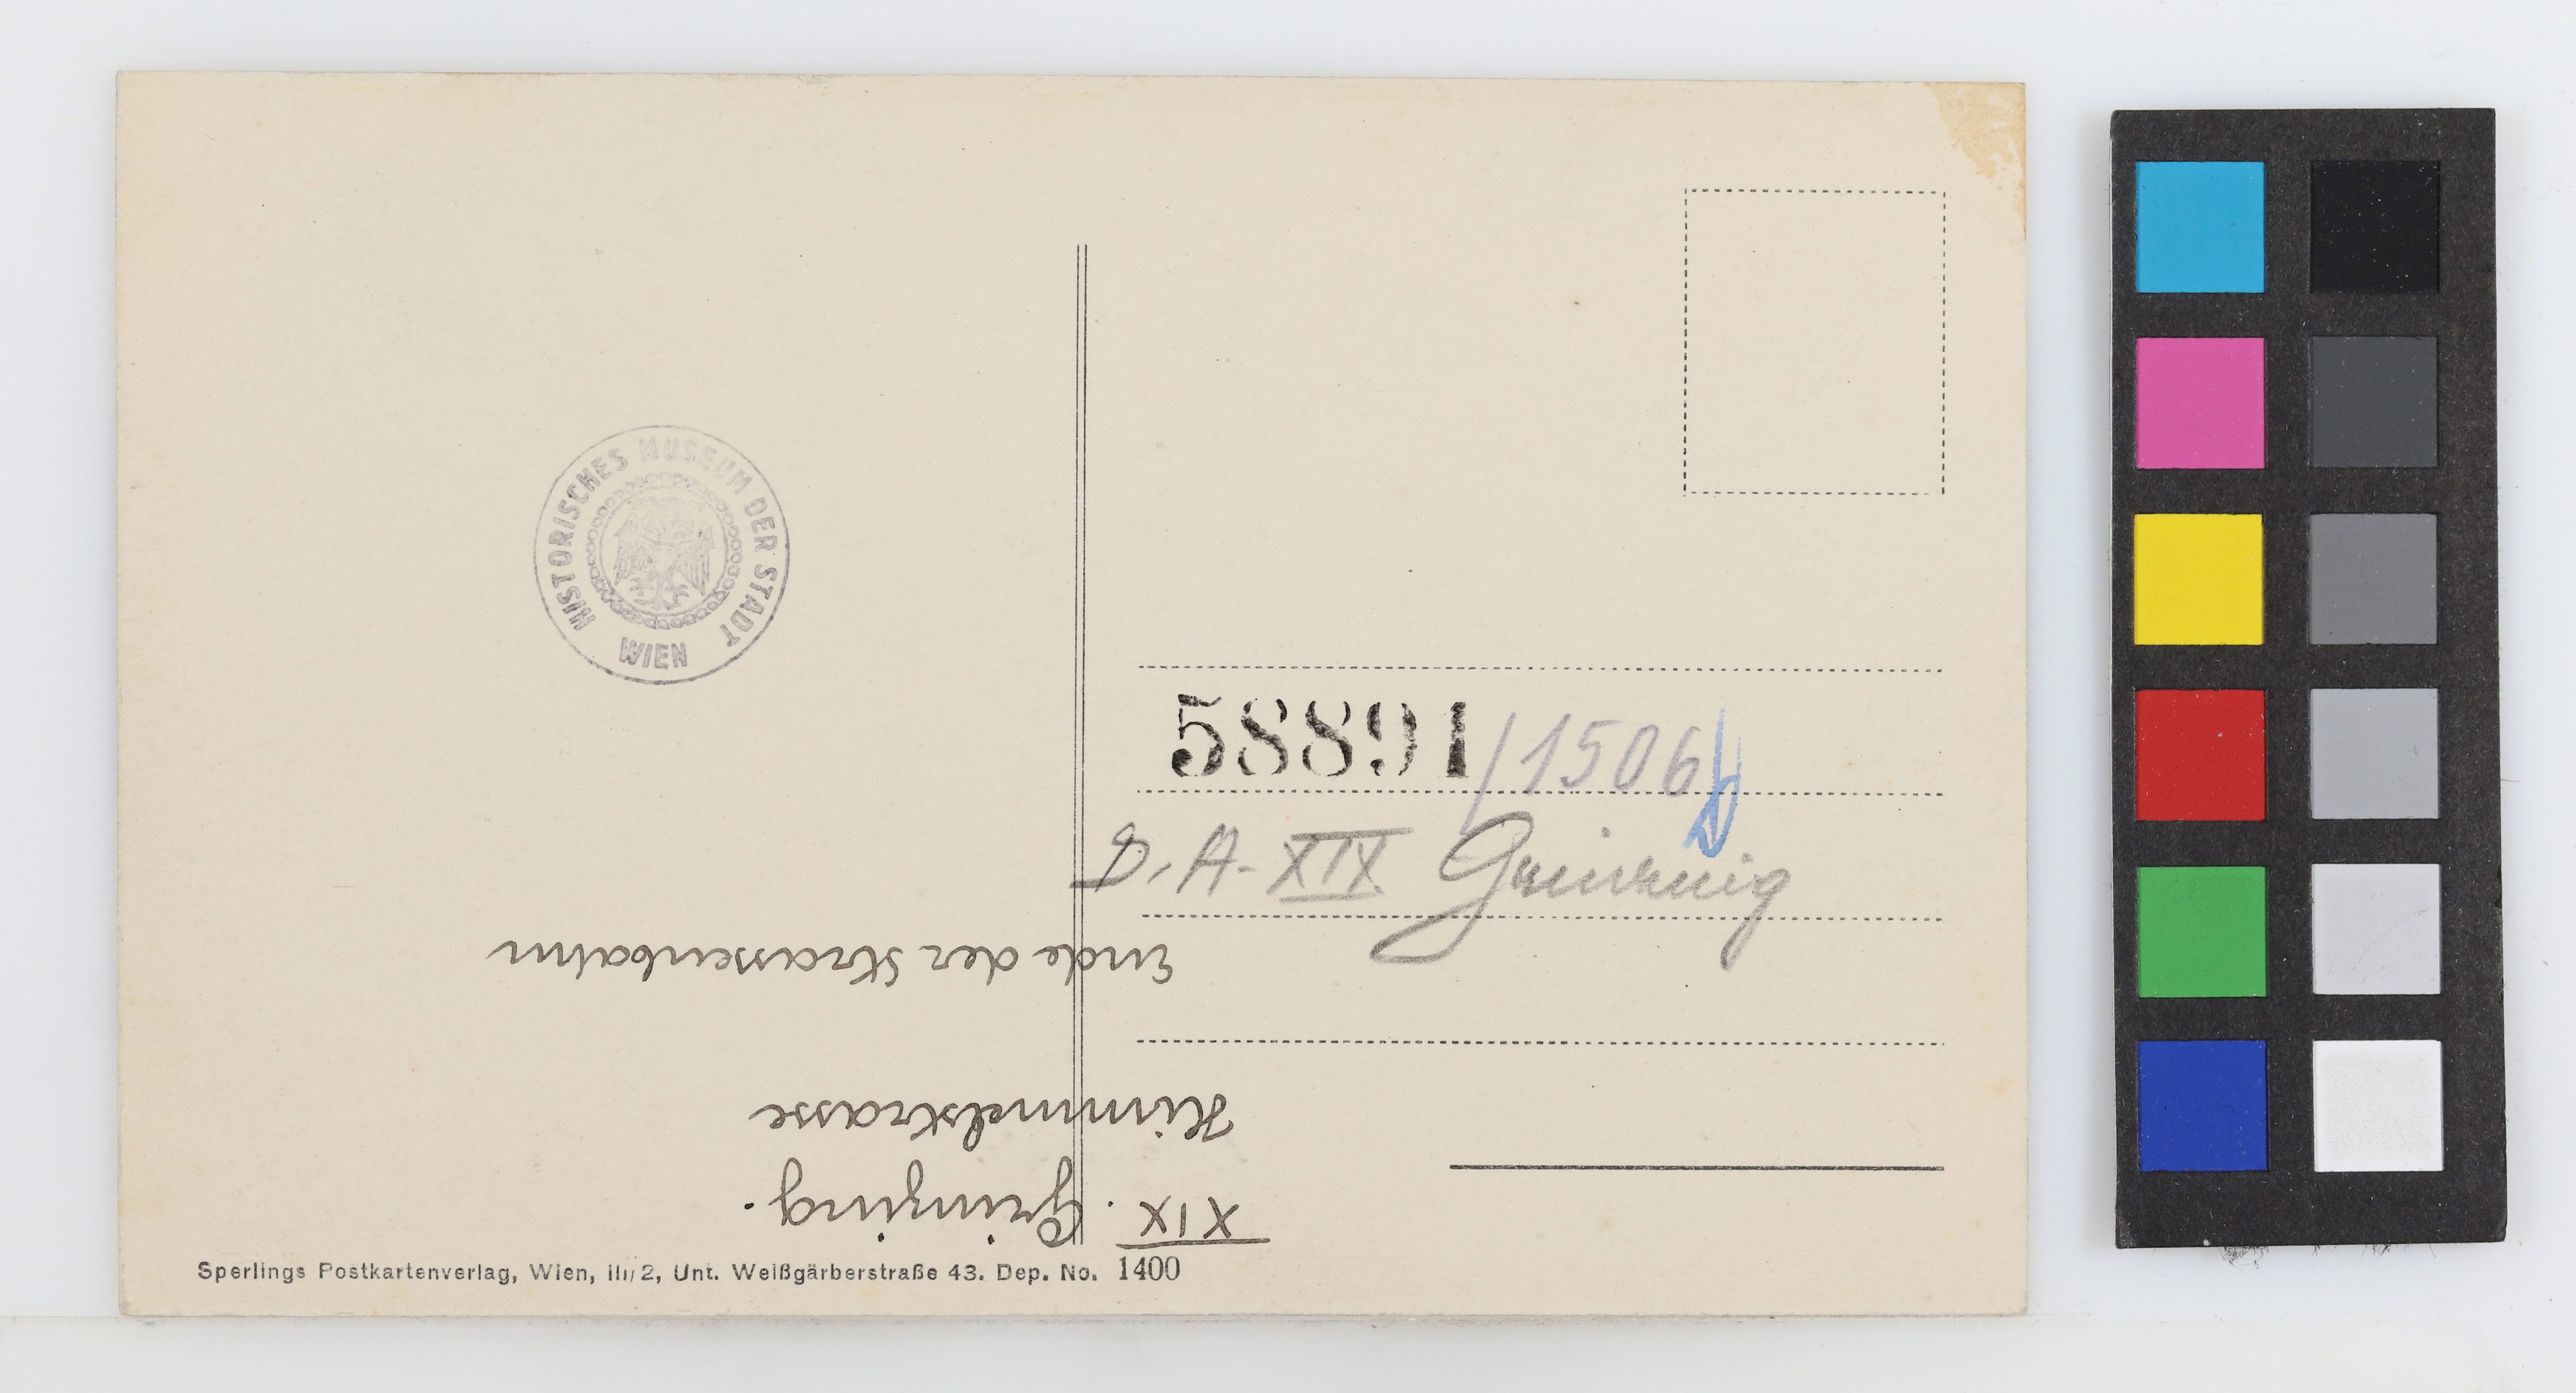 HISTORISCHES MUSEUM DER STADT
WIEN
58891/1506
D. A. XIX
XIX. Grinzing.
Himmelstrasse
Ende der Strassenbahn
Sperlings Postkartenverlag, Wien, III/2, Unt. Weißgärberstraße 43. Dep. No. 1400